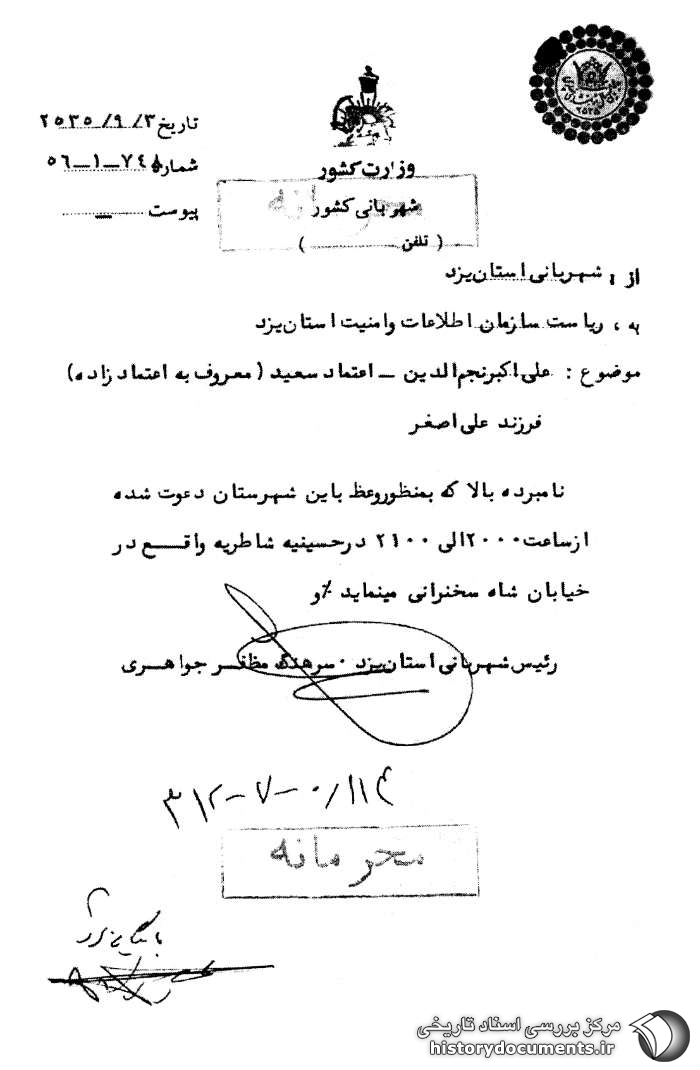 ۲۵۳۵
تاریخ ۲۵۳۵/۹/۳
شماره ۵۶-۱-۷۴۸
پیوست ـ
وزارت کشور
شهربانی کشور
محرمانه
( تلفن )
از : شهربانی استان یزد
به : ریاست سازمان اطلاعات وامنیت استان یزد
موضوع : علی اکبرنجم الدین ـ اعتماد سعید ( معروف به اعتماد زاده )
فرزند علی اصغر
نامبرده بالا که بمنظوروعظ باین شهرستان دعوت شده
ازساعت ۲۰۰۰ الی ۲۱۰۰ درحسینیه شاطریه واقع در
خیابان شاه سخنرانی مینماید ٪و
رئیس شهربانی استان یزد ۰ سرهنگ مظفر جواهری
۳۱۲-۷-۰/۱۱۴
محرمانه
بایگانی
مرکز بررسی اسناد تاریخی
historydocuments.ir